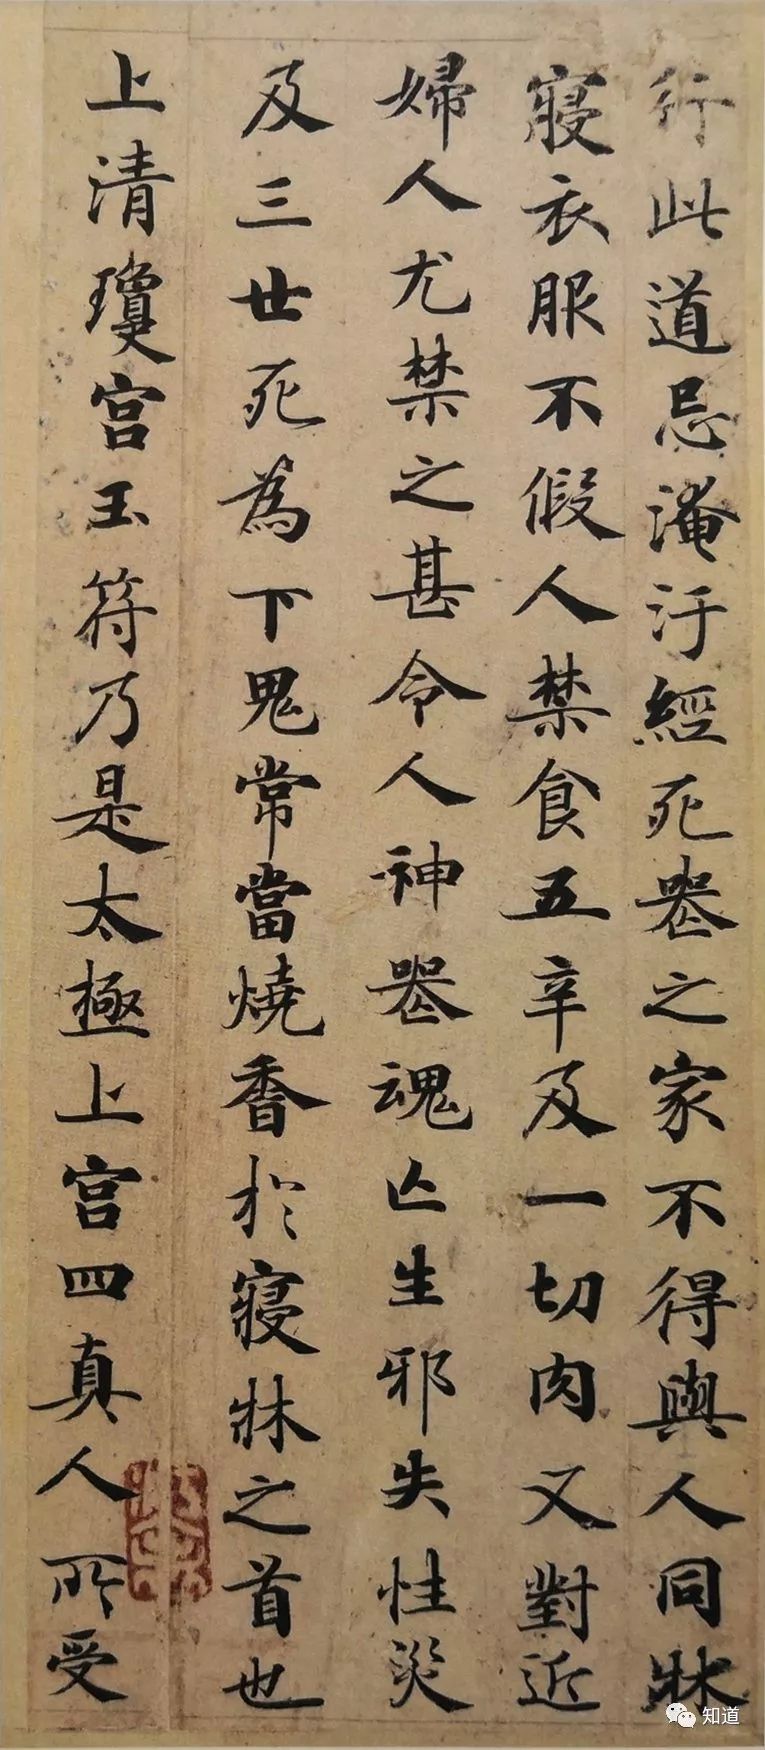 行此道忌淹汙經死器之家不得與人同牀
寢衣服不假人禁食五辛及一切肉又對近
婦人尤禁之甚令人神器魂亾生邪失性災
及三世死為下鬼常當燒香於寢牀之首也
上清瓊宮玉符乃是太極上宮四真人所受
知道